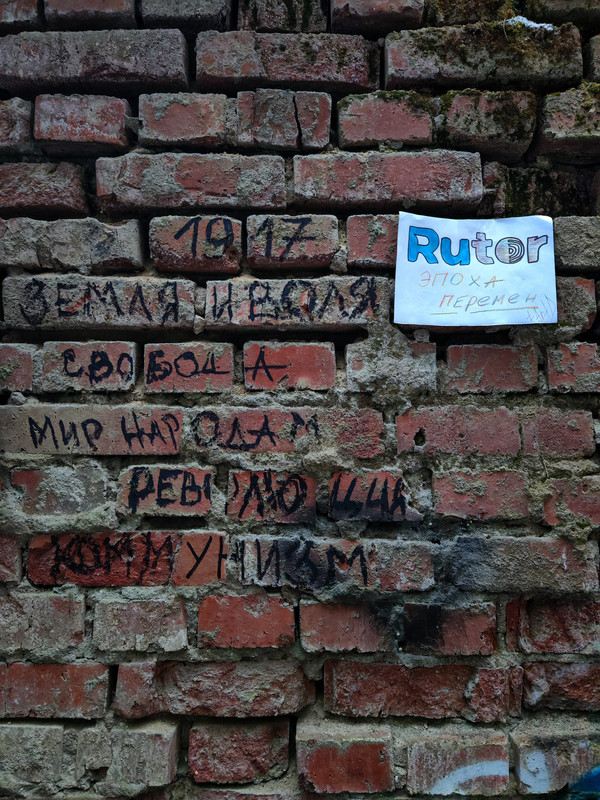 1917
Rutor
эпоха
перемен
ЗЕМЛЯ И ВОЛЯ
СВОБОДА
МИР НАРОДАМ
РЕВОЛЮЦИЯ
КОММУНИЗМ